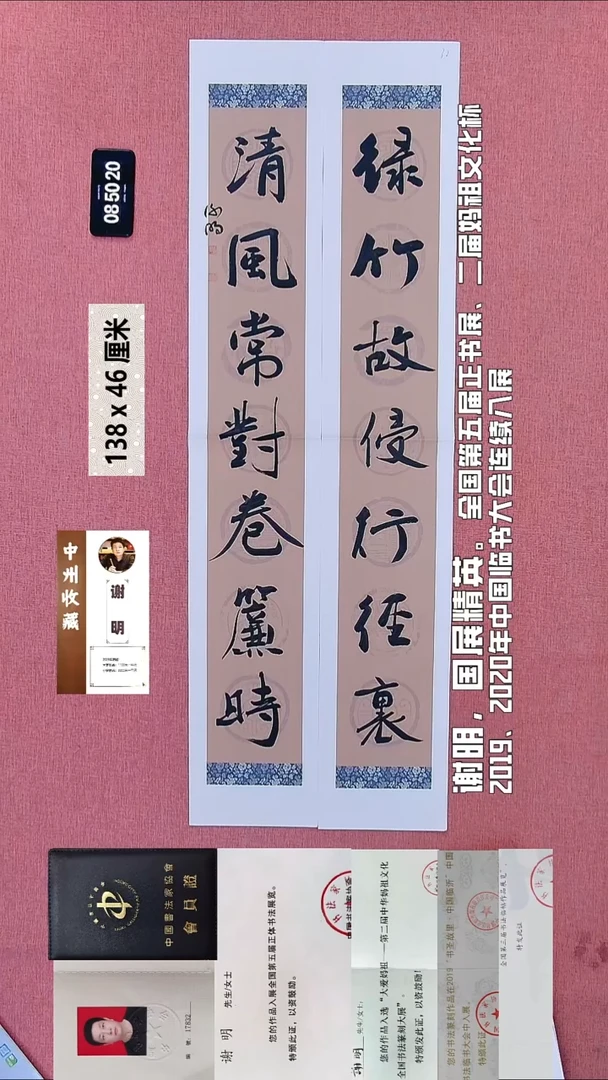 绿竹故侵行径裏
清風常對卷簾時
谢明，国展精英。全国第五届正书展、二届妈祖文化杯
2019、2020年中国临书大会连续入展
085020
138 x 46 厘米
中國書法家協會
會員證
編號：17832
谢 明 先生/女士
您的作品入展全国第五届正体书法展览。
特颁此证，以资鼓励。
谢明 先生/女士：
您的作品入选“大爱妈祖——第二届中华妈祖文化
全国书法篆刻大展”。
特颁发此证，以资鼓励！
您的书法篆刻作品在2019“书圣故里·中国临沂”中国
书法临书大会中入展。
特颁此证
特发此证